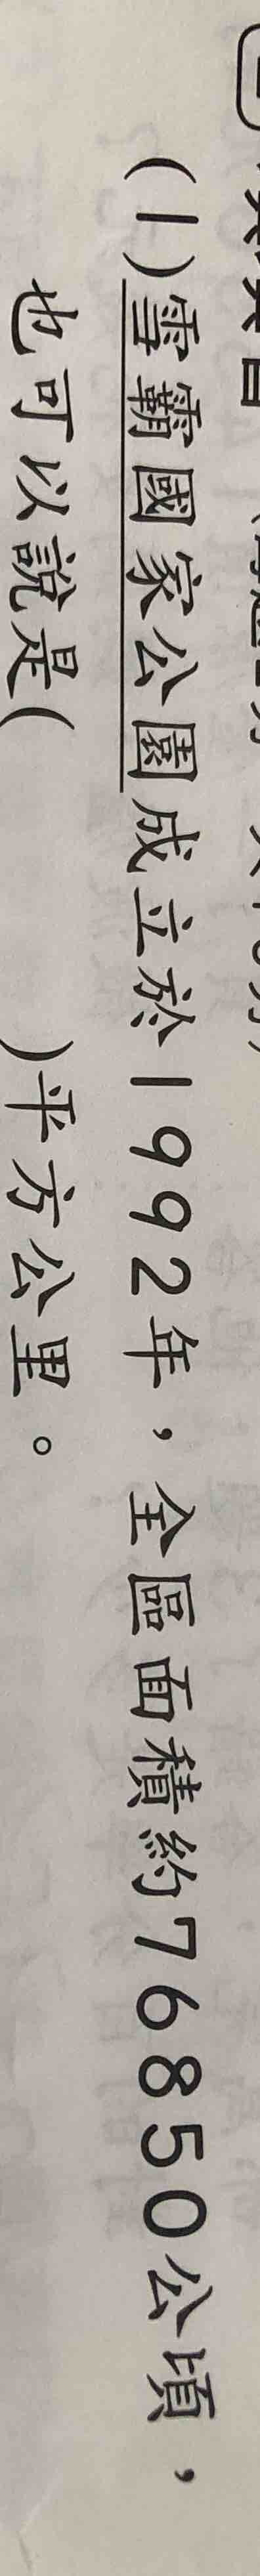 (1)雪霸國家公園成立於1992年，全區面積約76850公頃，
也可以說是(　　　　)平方公里。